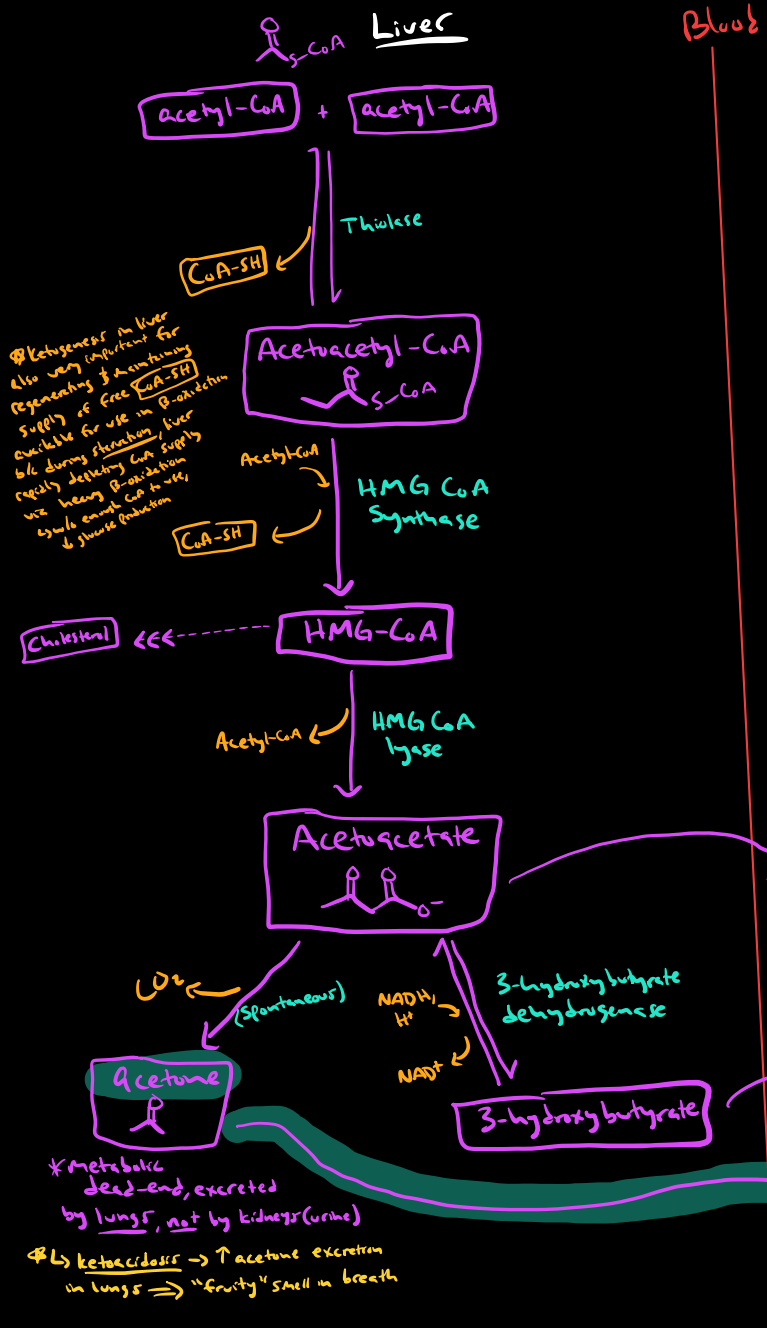 Liver
Blood
O
S-CoA
acetyl-CoA + acetyl-CoA
Thiolase
CoA-SH
Acetoacetyl-CoA
O
S-CoA
*Ketogenesis in liver
also very important for
regenerating & maintaining
supply of free CoA-SH
available for use in β-oxidation
b/c during starvation, liver
rapidly depleting CoA supply
via heavy β-oxidation
↳w/o enough CoA to use,
↓ glucose production
Acetyl-CoA
HMG CoA
Synthase
CoA-SH
Cholesterol
HMG-CoA
Acetyl-CoA
HMG CoA
lyase
Acetoacetate
O O
O⁻
CO₂
(spontaneous)
NADH,
H⁺
NAD⁺
3-hydroxybutyrate
dehydrogenase
acetone
O
3-hydroxybutyrate
*metabolic
dead-end, excreted
by lungs, not by kidneys (urine)
*↳ ketoacidosis → ↑ acetone excretion
in lungs ⇒ "fruity" smell in breath